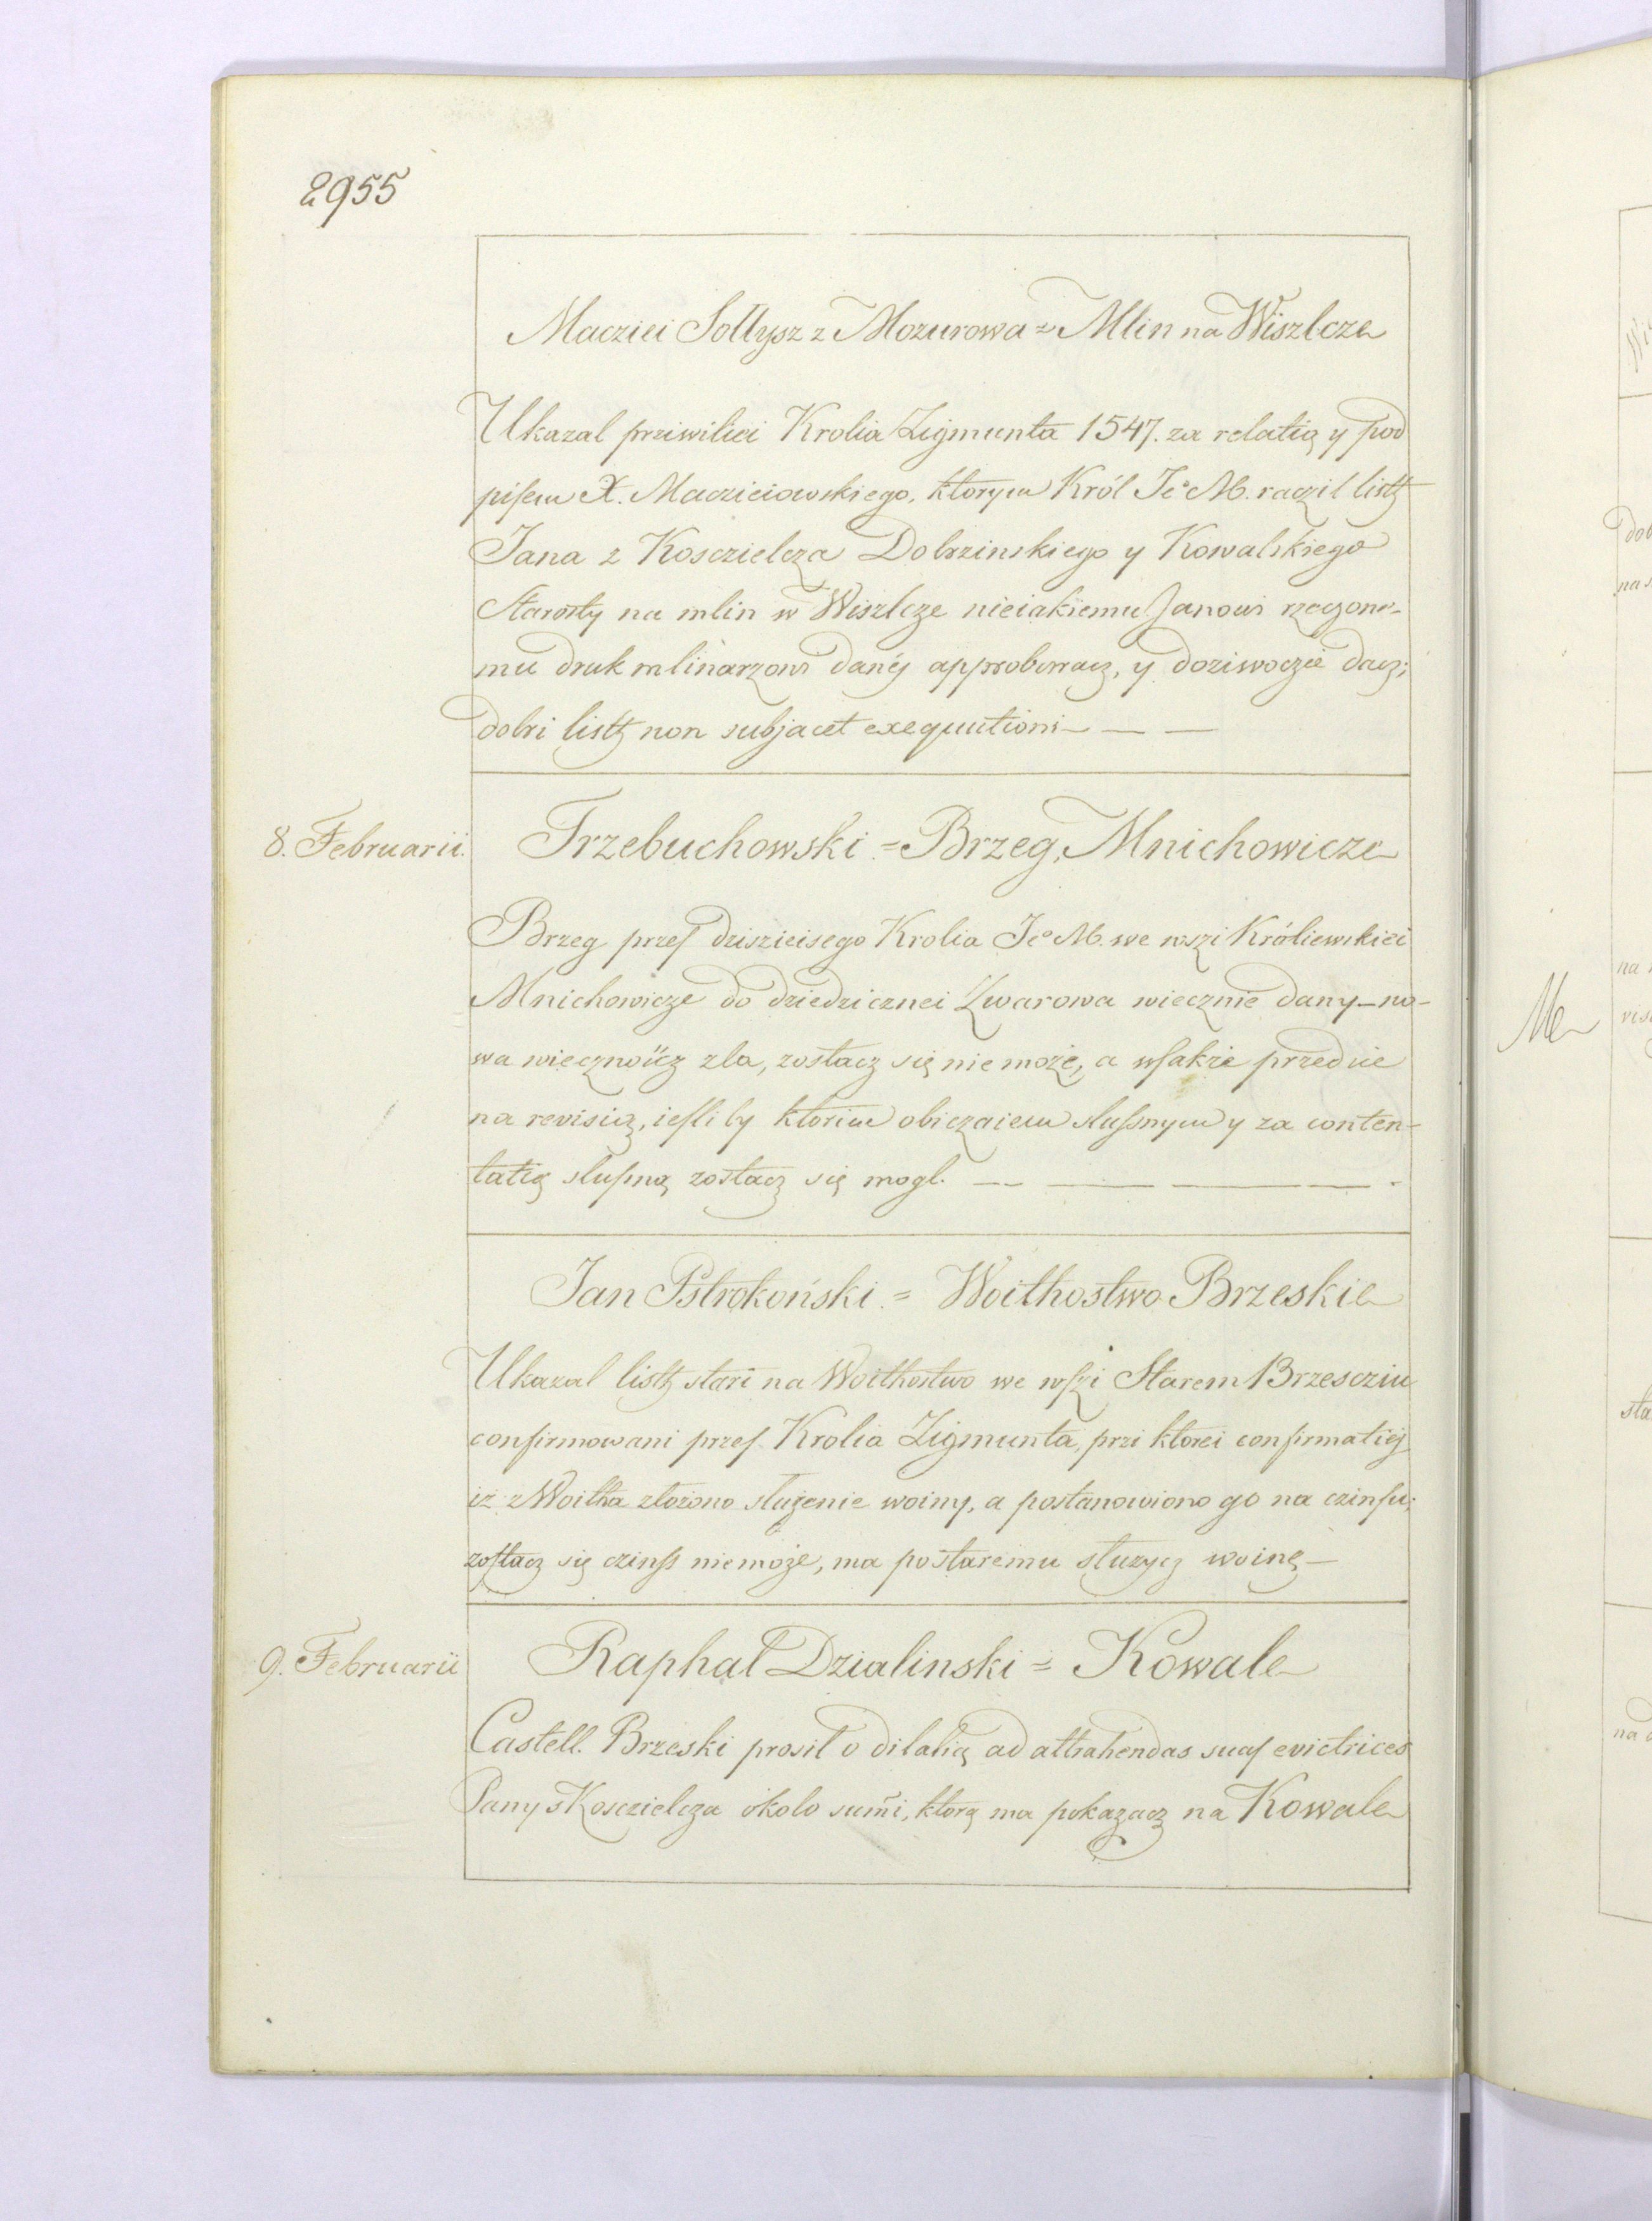 2955
Macziei Sołtysz z Mozurowa = Mlin na Wiszlcze
Ukazal priwiliei Krolia Zigmunta 1547. za relatią y pod
pisem X. Macziciowskiego, ktorym Król Jeº M. raczil listƶ
Jana z Kosczielcza Dobrzinskiego y Kowalskiego
Starosty na mlin w Wiszlcze nieiakiemu Janowi rzeczone-
mu druk mlinarzowi danÿ approbowacz, y doziwoczie dacz;
dobri listƶ non subjacet exequutioni — — —
8. Februarii.
Trzebuchowski. = Brzeg, Mnichowicze
Brzeg przeſ dzisieisego Krolia Jeº M. we wszi Króliewskiei
Mnichowicze do dziedzicznei Zwarowa wiecznie dany — no-
wa wiecznoścz zla, zostacz się nie może, a wſakże przednie
na revisią, ieſli by ktorim obiczaiem sluſsnym y za conten-
tatią sluſsną zostacz się mogl. — — — — .
Jan Pstrokoński. = Woithostwo Brzeskie
Ukazal listƶ stari na Woithostwo we wſzi Starem Brzesciu
confirmowani przeſ Krolia Zigmunta, przi ktorei confirmatiÿ
iż z Woitha złożono służenie woiny, a postanowiono go na czinſu;
zoſtacz się czinſs nie może, ma postaremu służycz woinę —
9. Februarii
Raphał Dzialinski = Kowale
Castell. Brzeski prosił o dilatią ad attrahendas suaſ evictrices
Pany z Kosczielcza około sum̃i, ktorą ma pokazacz na Kowale